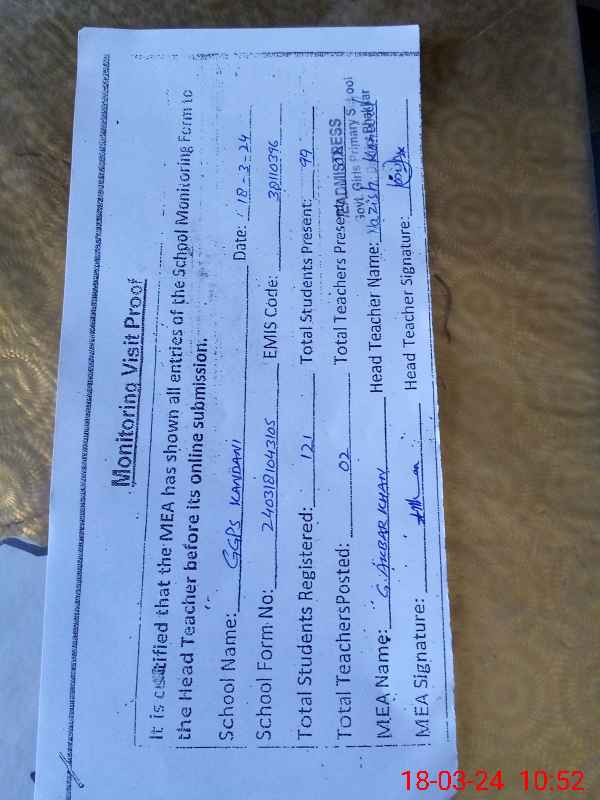 Monitoring Visit Proof
It is certified that the MEA has shown all entries of the School Monitoring Form to
the Head Teacher before its online submission.
School Name: GGPS KANDANI Date: 18-3-24
School Form No: 2403181043105 EMIS Code: 30110396
Total Students Registered: 121 Total Students Present: 99
Total Teachers Posted: 02 Total Teachers Present:
MEA Name: G. AKBAR KHAN Head Teacher Name: Nazish
MEA Signature: Head Teacher Signature:
HEADMISTRESS
Govt. Girls Primary School
Bhakkar
18-03-24 10:52